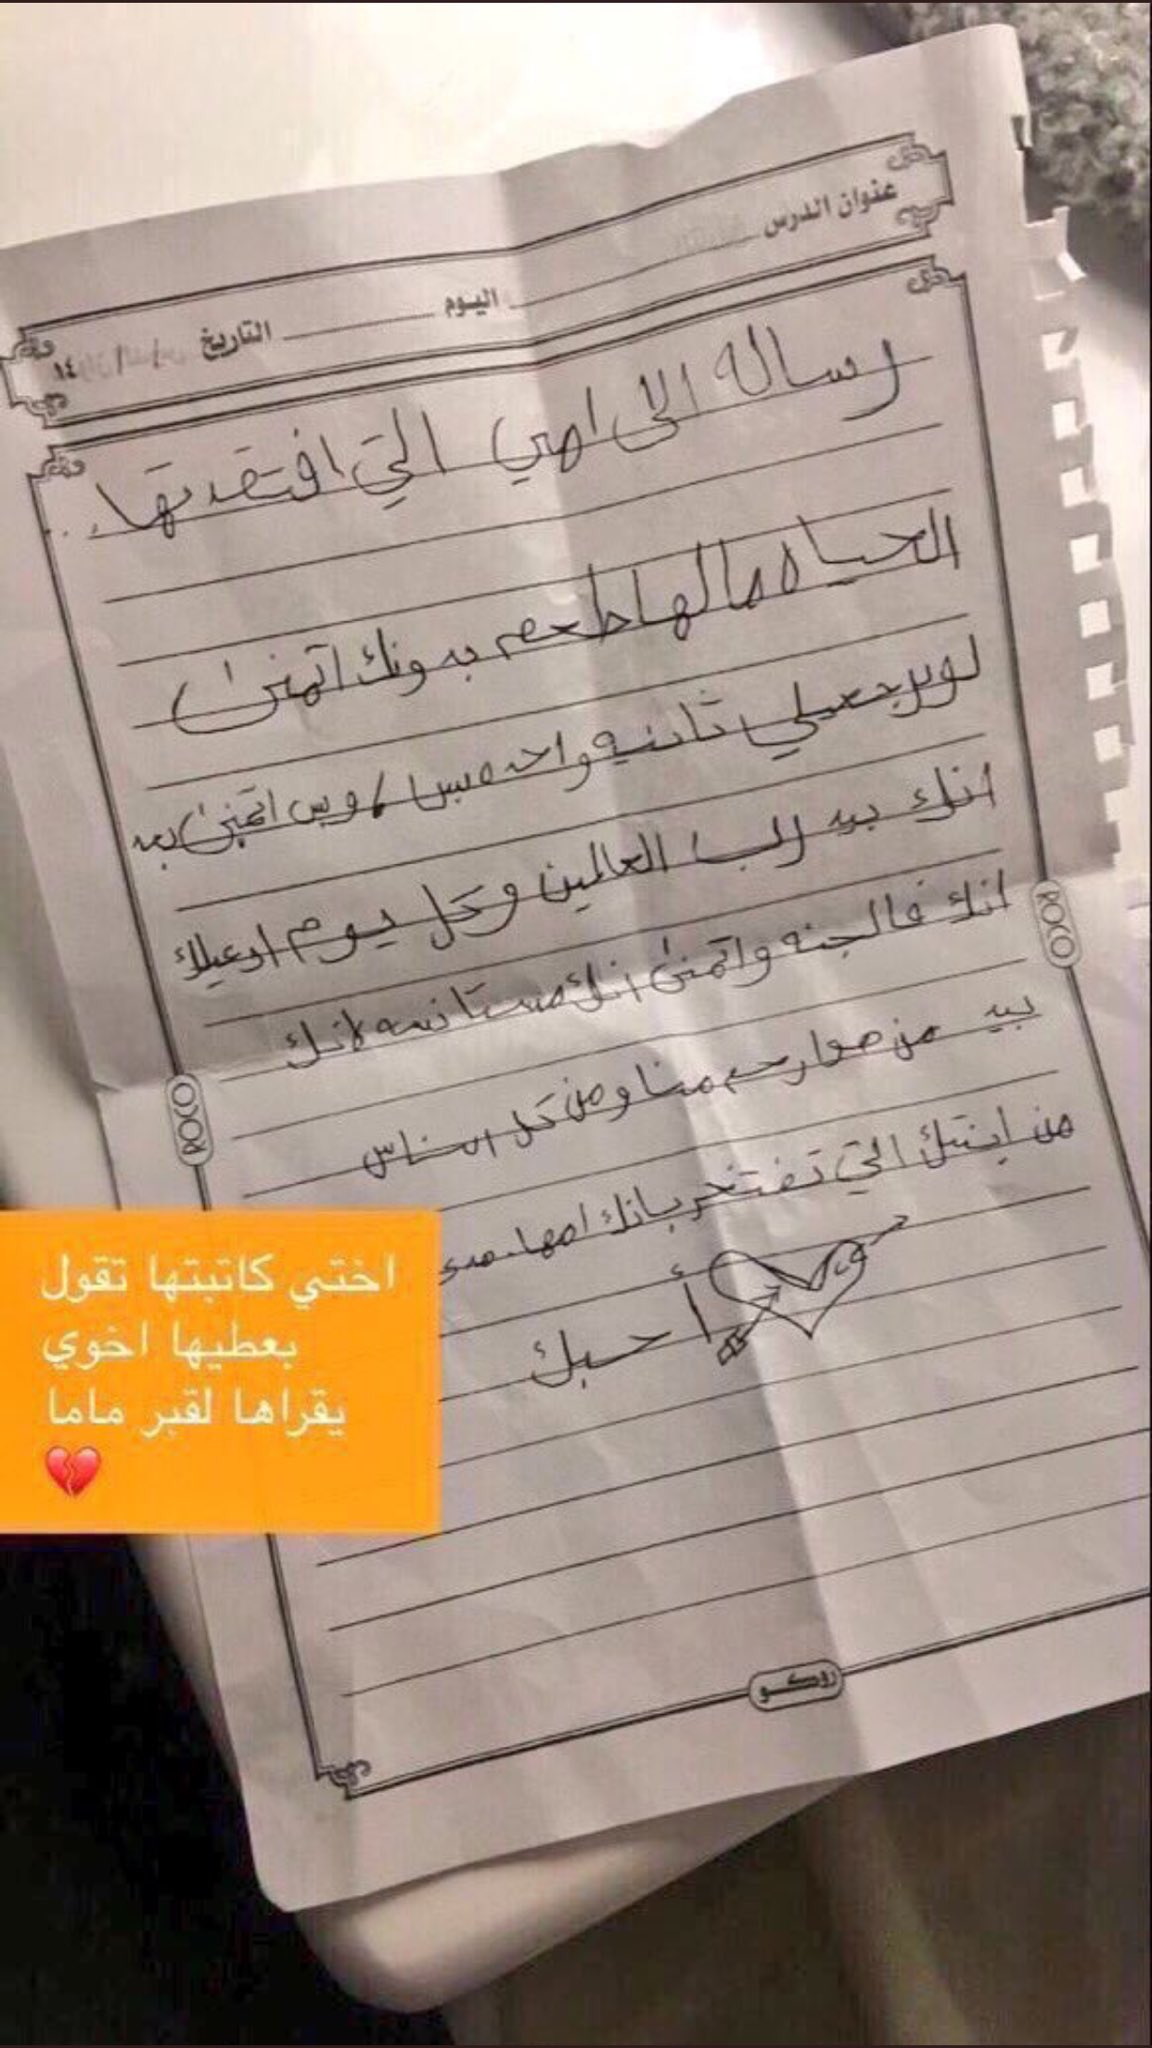 عنوان الدرس
اليوم
التاريخ / / ١٤
رساله الى امي التي افتقدتها..
الحياه مالها طعم بدونك اتمنى
لو يرجعلي ثانيه واحده بس / وبس اتمنى بعد
انك بيد رب العالمين وكل يوم ادعيلك
انك فالجنه واتمنى انك مستانسه لانك
بيد من هو ارحم منا ومن كل الناس
من ابنتك التي تفتخر بانك امها
أحبك
ROCO
ROCO
اختي كاتبتها تقول
بعطيها اخوي
يقراها لقبر ماما
💔
روكو